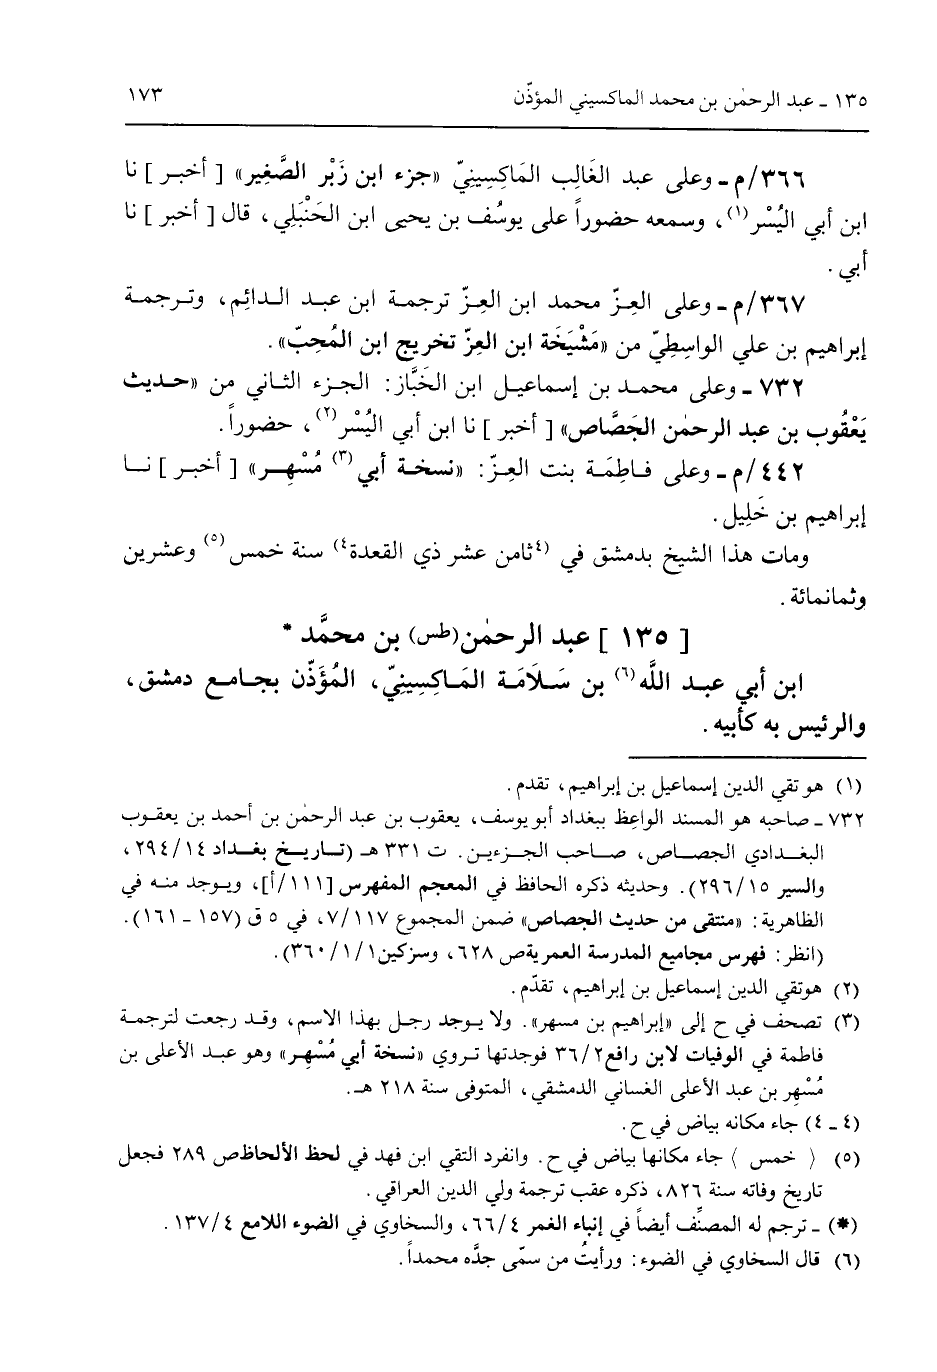 ١٣٥ ـ عبد الرحمٰن بن محمد الماكسيني المؤذّن ١٧٣
٣٦٦/م ـ وعلى عبد الغَالِب المَاكِسِينِيّ «جزء ابن زَبْر الصَّغِير» [ أخبـر ] نا
ابن أبي اليُسْر(١)، وسمعه حضوراً على يوسُف بن يحيى ابن الحَنْبَلِي، قال [ أخبر ] نا
أبي .
٣٦٧/م ـ وعلى العِـزّ محمد ابن العِـزّ ترجمـة ابن عبـد الـدائِم، وتـرجمـة
إبراهيم بن علي الواسِطِيّ من «مَشْيَخَة ابن العِزّ تخريج ابن المُحِبّ» .
٧٣٢ ـ وعلى محمـد بن إسماعيـل ابن الخَبَّاز: الجـزء الثـاني من «حـديث
يَعْقُوب بن عبد الرحمٰن الجَصَّاص» [ أخبر ] نا ابن أبي اليُسْر(٢)، حضوراً .
٤٤٢/م ـ وعلى فـاطِمَـة بنت العِـزّ: «نسخـة أبي(٣) مُسْهِـر» [ أخبـر ] نـا
إبراهيم بن خَلِيل .
ومات هذا الشيخ بدمشق في (٤ثامن عشر ذي القعدة٤) سنة خمس(٥) وعشرين
وثمانمائة .
[ ١٣٥ ] عبد الرحمٰن(طس) بن محمَّد *
ابن أبي عبـد اللَّه(٦) بن سَـلَامَـة المَـاكِسِينِيّ، المُؤَذّن بجـامـع دمشق،
والرئيس به كأبيه .
(١) هو تقي الدين إسماعيل بن إبراهيم، تقدم .
٧٣٢ ـ صاحبه هو المسند الواعِظ ببغداد أبو يوسف، يعقوب بن عبد الرحمٰن بن أحمد بن يعقـوب
البغـدادي الجصـاص، صـاحب الجـزءيـن . ت ٣٣١ هـ (تـاريـخ بغـداد ٢٩٤/١٤،
والسير ٢٩٦/١٥) . وحديثه ذكره الحافظ في المعجم المفهرس [١١١/أ]، ويـوجد منـه في
الظاهرية: «منتقى من حديث الجصاص» ضمن المجموع ٧/١١٧، في ٥ ق (١٥٧ ـ ١٦١) .
(انظر: فهرس مجاميع المدرسة العمرية ص ٦٢٨، وسزكين ٣٦٠/١/١) .
(٢) هو تقي الدين إسماعيل بن إبراهيم، تقدّم .
(٣) تصحف في ح إلى «إبراهيم بن مسهر» . ولا يـوجد رجـل بهذا الاسم، وقـد رجعت لترجمـة
فاطمة في الوفيات لابن رافع ٣٦/٢ فوجدتها تـروي «نسخة أبي مُسْهِـر» وهو عبـد الأعلى بن
مُسْهِر بن عبد الأعلى الغساني الدمشقي، المتوفى سنة ٢١٨ هـ .
(٤ ـ ٤) جاء مكانه بياض في ح .
(٥) ( خمس ) جاء مكانها بياض في ح . وانفرد التقي ابن فهد في لحظ الألحاظ ص ٢٨٩ فجعل
تاريخ وفاته سنة ٨٢٦، ذكره عقب ترجمة ولي الدين العراقي .
(*) ـ ترجم له المصنِّف أيضاً في إنباء الغمر ٦٦/٤، والسخاوي في الضوء اللامع ١٣٧/٤ .
(٦) قال السخاوي في الضوء: ورأيتُ من سمّى جدَّه محمداً .